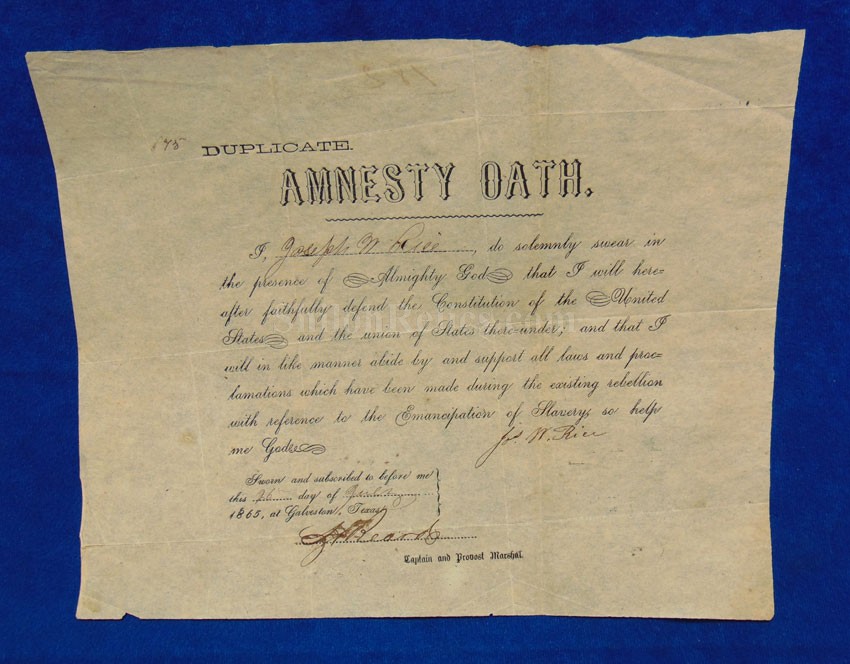 675 DUPLICATE.
AMNESTY OATH.
I, Joseph W Rice, do solemnly swear in
the presence of Almighty God that I will here=
after faithfully defend the Constitution of the United
States and the union of States there-under; and that I
will in like manner abide by and support all laws and proc=
lamations which have been made during the existing rebellion
with reference to the Emancipation of Slavery; so help
me God.
Jos W. Rice
Sworn and subscribed to before me
this 26 day of
1865, at Galveston, Texas.
Captain and Provost Marshal.